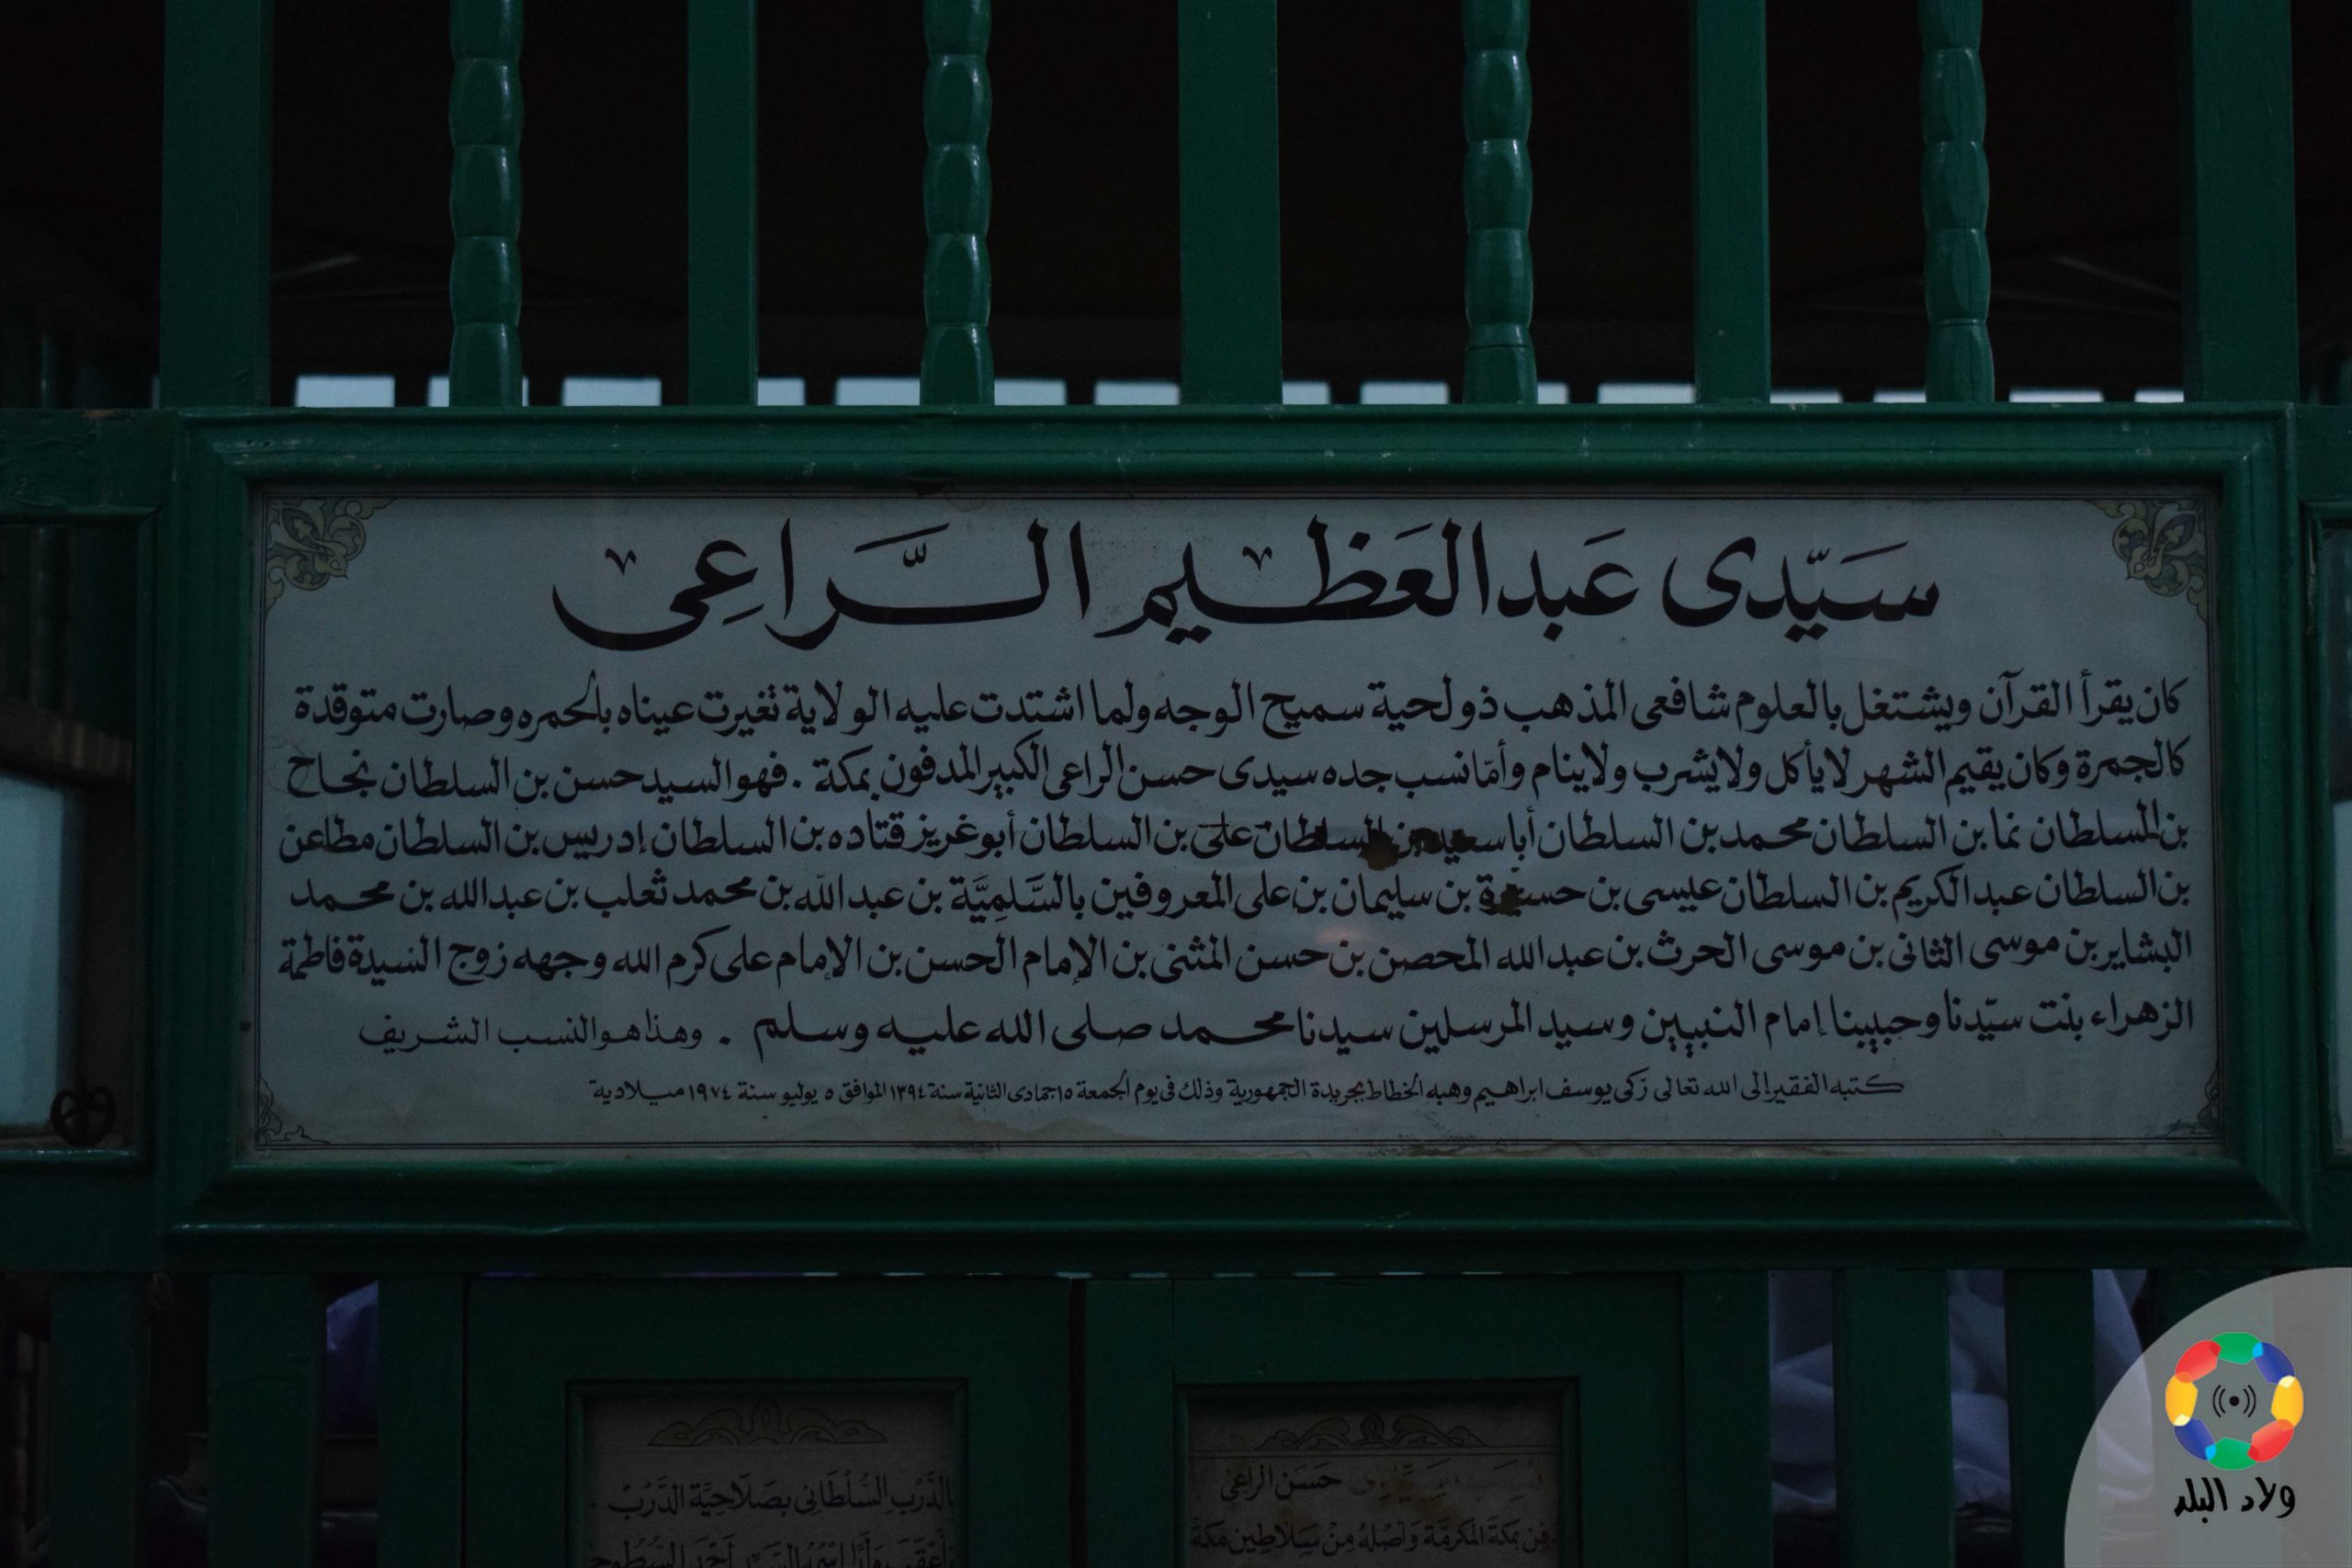 سَيّدى عَبدالعَظيم الرَّاعِى
كان يقرأ القرآن ويشتغل بالعلوم شافعى المذهب ذو لحية سميح الوجه ولما اشتدت عليه الولاية تغيرت عيناه بالحمره وصارت متوقدة
كالجمرة وكان يقيم الشهر لا يأكل ولا يشرب ولا ينام وأمّا نسب جده سيدى حسن الراعى الكبير المدفون بمكة . فهو السيد حسن بن السلطان نجاح
بن السلطان نما بن السلطان محمد بن السلطان أبا سعيد بن السلطان على بن السلطان أبو غريز قتاده بن السلطان إدريس بن السلطان مطاعن
بن السلطان عبد الكريم بن السلطان عيسى بن بن سليمان بن على المعروفين بالسَّلمِيَّة بن عبد الله بن محمد ثعلب بن عبد الله بن محمد
البشاير بن موسى الثانى بن موسى الحرث بن عبد الله المحصن بن حسن المثنى بن الإمام الحسن بن الإمام على كرم الله وجهه زوج السيدة فاطمة
الزهراء بنت سيّدنا وحبيبنا إمام النبيين وسيد المرسلين سيدنا محمد صلى الله عليه وسلم . وهذا هو النسب الشريف
كتبه الفقير إلى الله تعالى زكى يوسف ابراهيم وهبه الخطاط بجريدة الجمهورية وذلك فى يوم الجمعة ١٥ جمادى الثانية سنة ١٣٩٤ الموافق ٥ يوليو سنة ١٩٧٤ ميلادية
حَسَن الراعى
بمَكة المكرمَة وَأصْلهُ مِنْ سَلاطِين مَكة
الدَّرْب السُّلْطَانِى بصَلَاحِيَّة الدَّرْبْ .
السَّيّد أحْمَد السُّطُوحِ
ولاد البلد